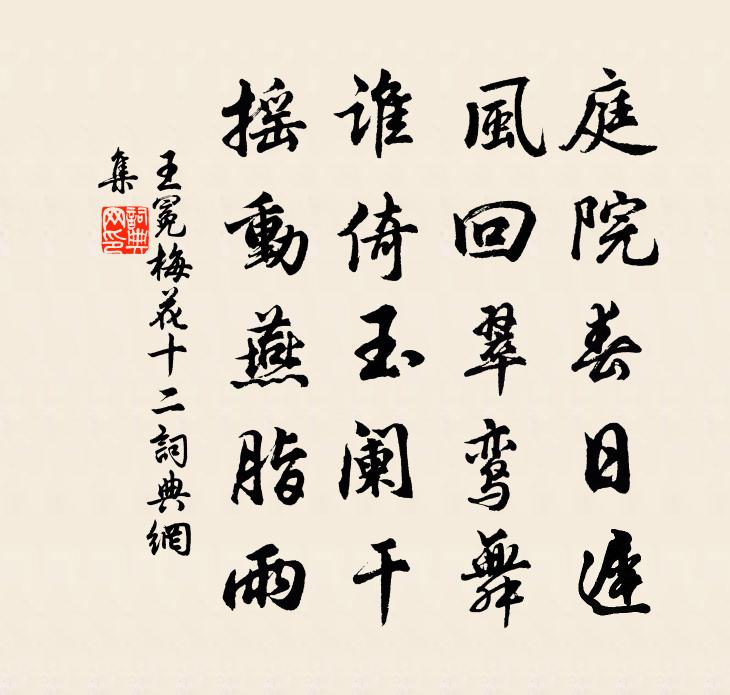 庭院春日遲
風回翠鸾舞
誰倚玉阑干
摇動燕脂雨
王冕梅花十二詞典網
集
詞典
网印